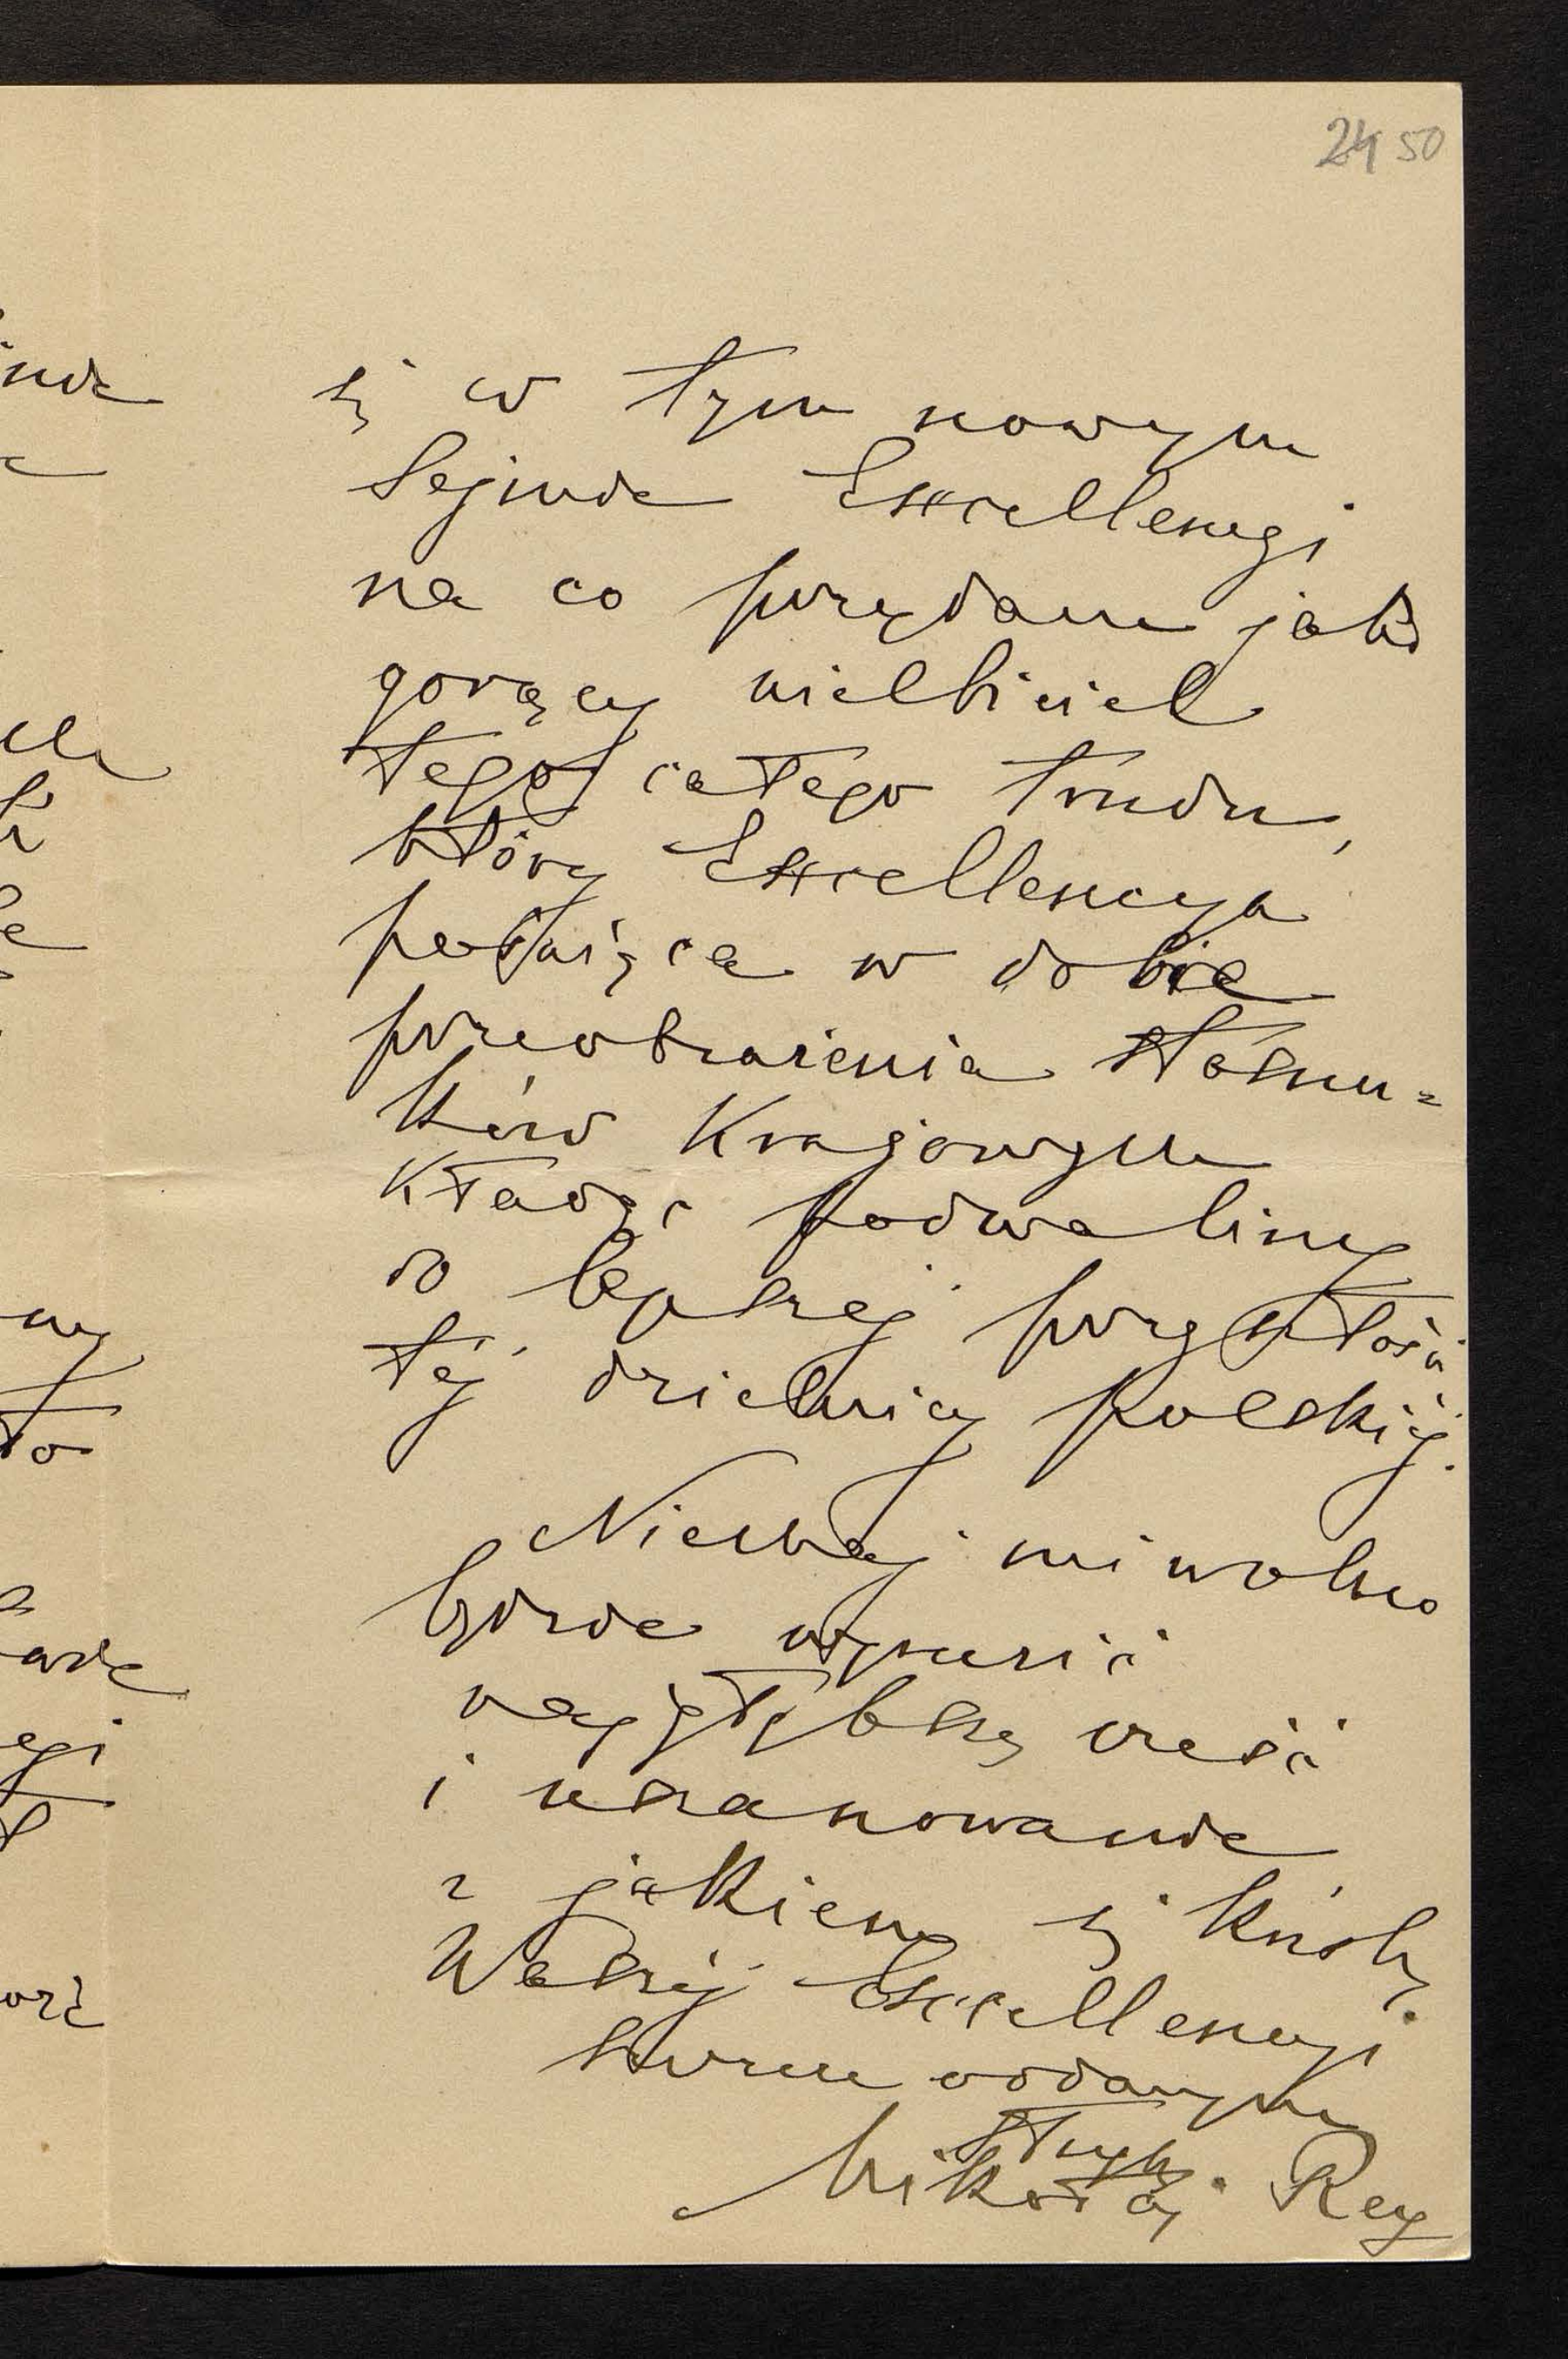 24 50
się w tym nowym
Sejmie Excellencyi
na co przydam jako
gorący wielbiciel
tego całego trudu,
który Excellencya
poświęca w dobie
przeobrażenia stosun=
ków Krajowych
Kładąc podwaliny
do lepszej przyszłości
téj dzielnicy polskiéj.
Niechaj mi wolno
będzie wyrazić
najgłębszą cześć
i uszanowanie
z jakiem się kreślę
Waszéj Excellencyi
szczerze oddanym
sługą
Mikołaj Rey